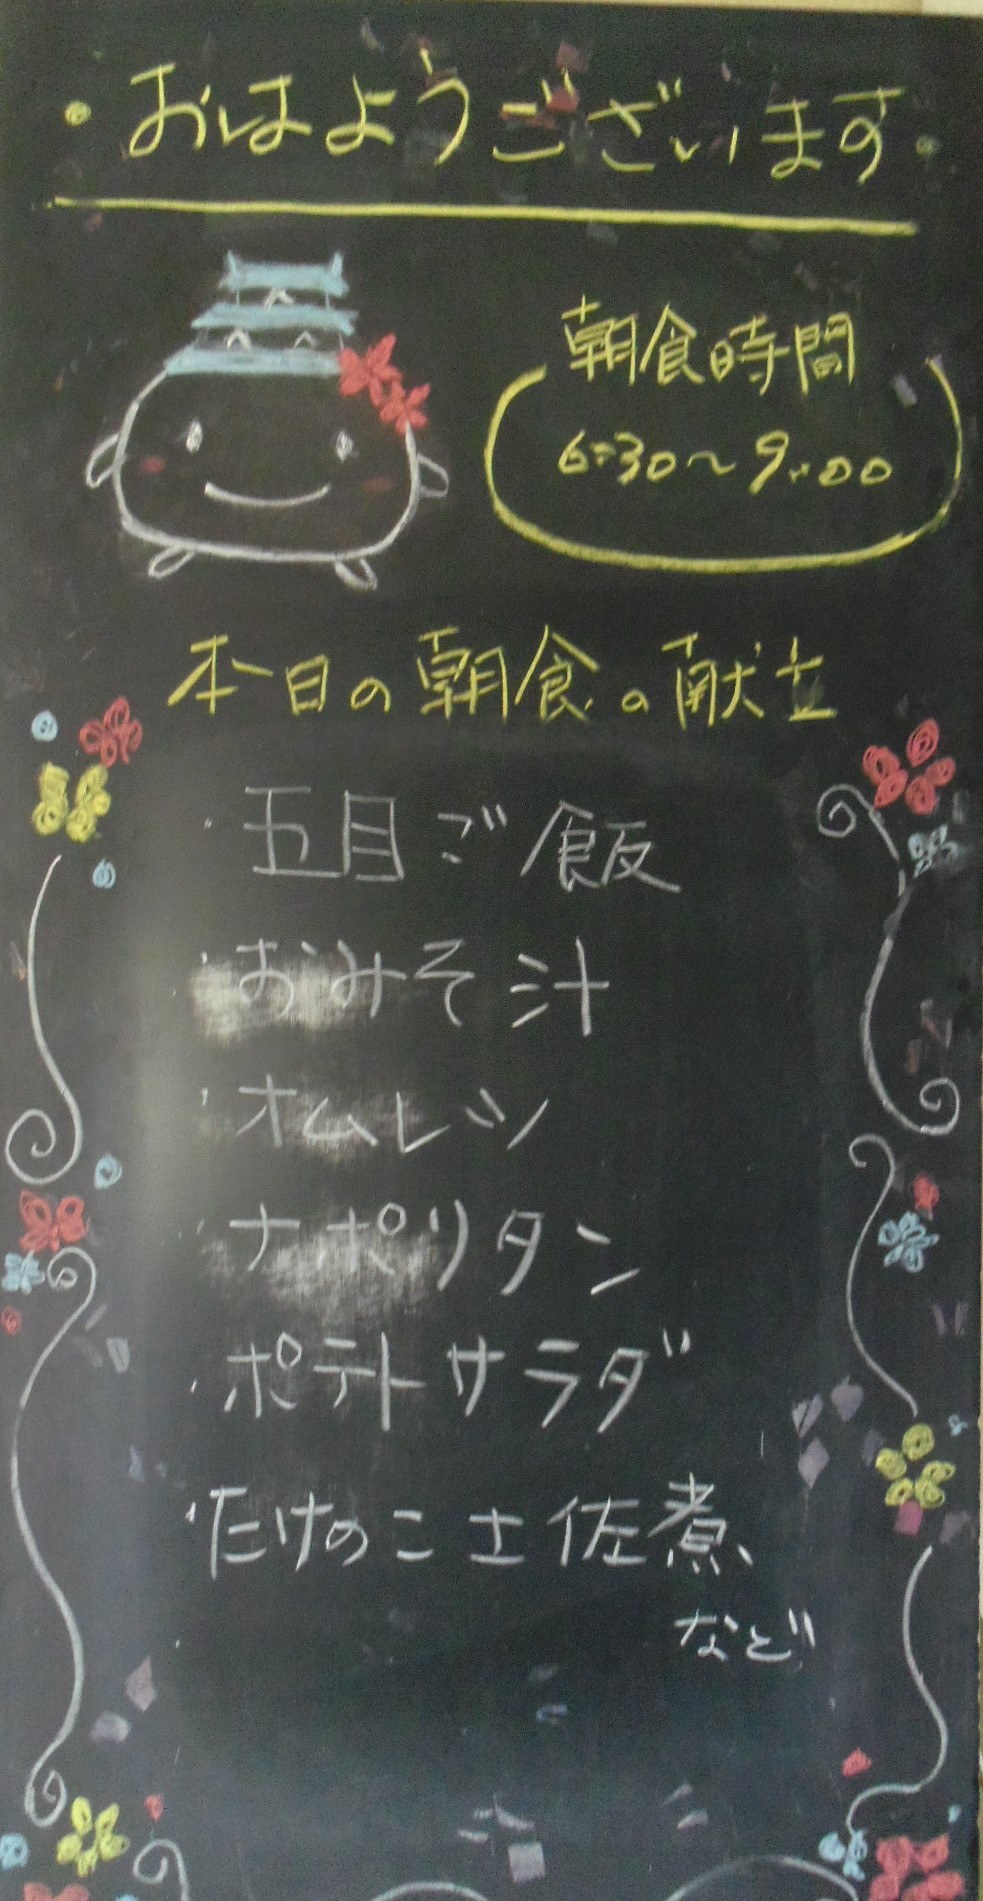 ・おはようございます・
朝食時間
6:30～9:00
本日の朝食の献立
・五目ご飯
・おみそ汁
・オムレツ
・ナポリタン
・ポテトサラダ
・たけのこ土佐煮
など